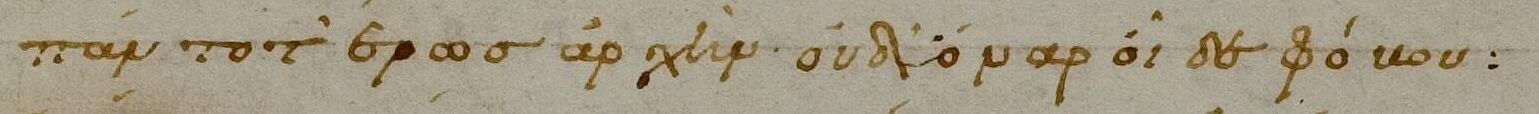 πὰν ποτ' ἔρωσ ἀρχὴν οὐδ' ὄναρ οἶδε φόκου: